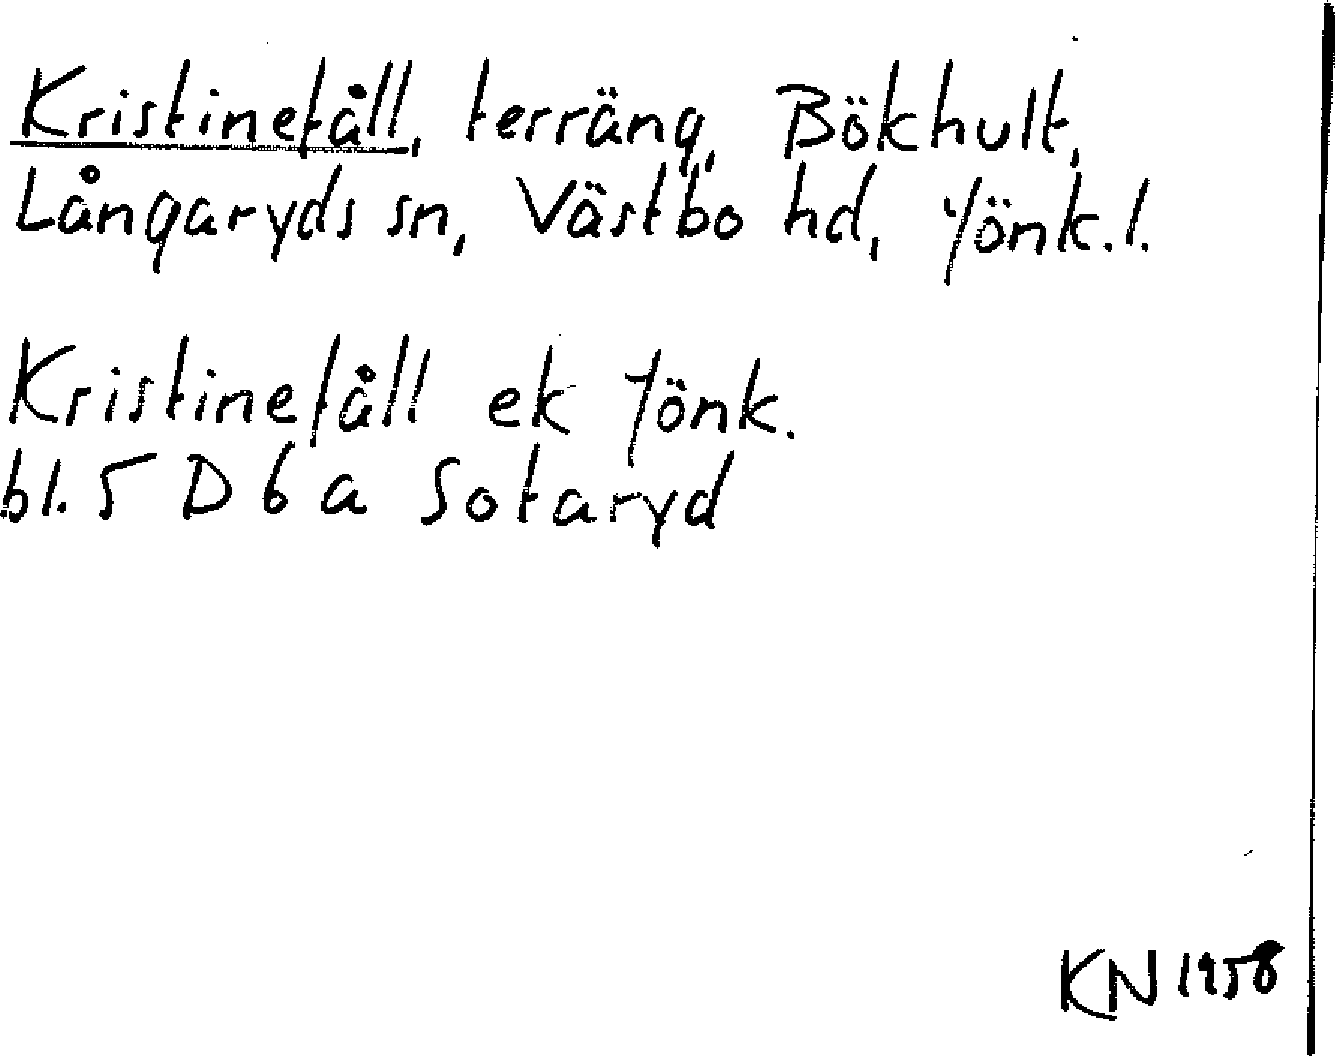 Kristinefåll, terräng, Bökhult,
Långaryds sn, Västbo hd, Jönk.l.
Kristinefåll ek Jönk.
bl. 5 D 6 a Sotaryd
KN 1958